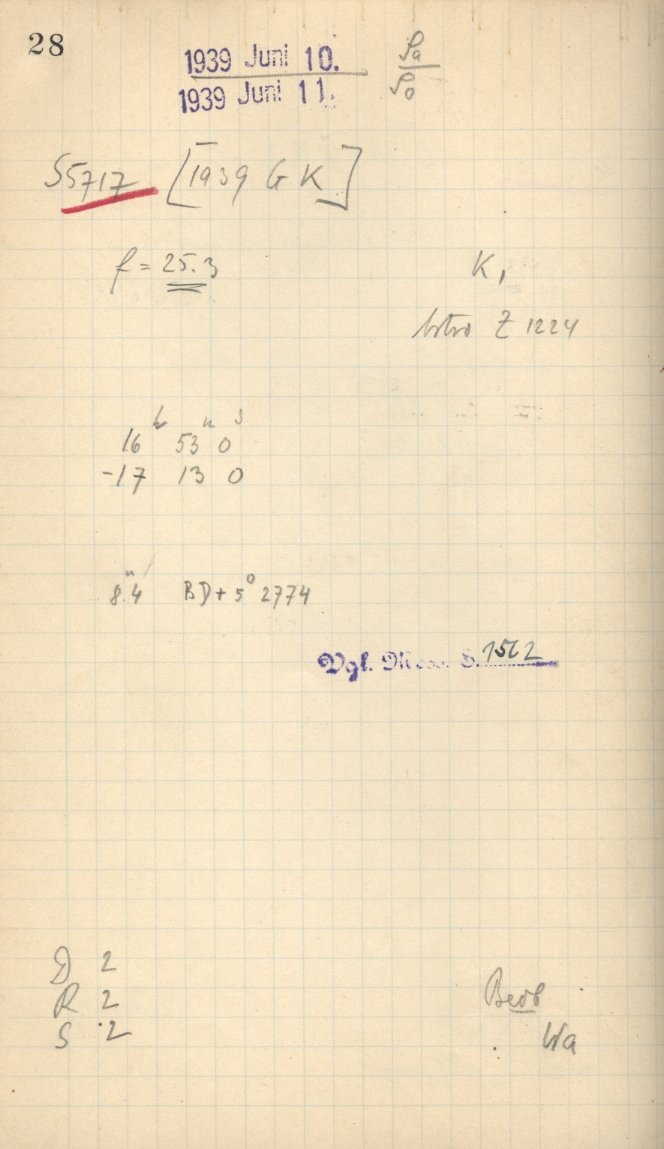 28
1939 Juni 10.
1939 Juni 11.
Sa
So
S5717 [1939 GK]
f = 25.3
K,
Astro Z 1224
16h 53m 0s
-17 13 0
8.m4 BD+5° 2774
Vgl. Mess. S. 1562
D 2
R 2
S 2
Beob
Wa